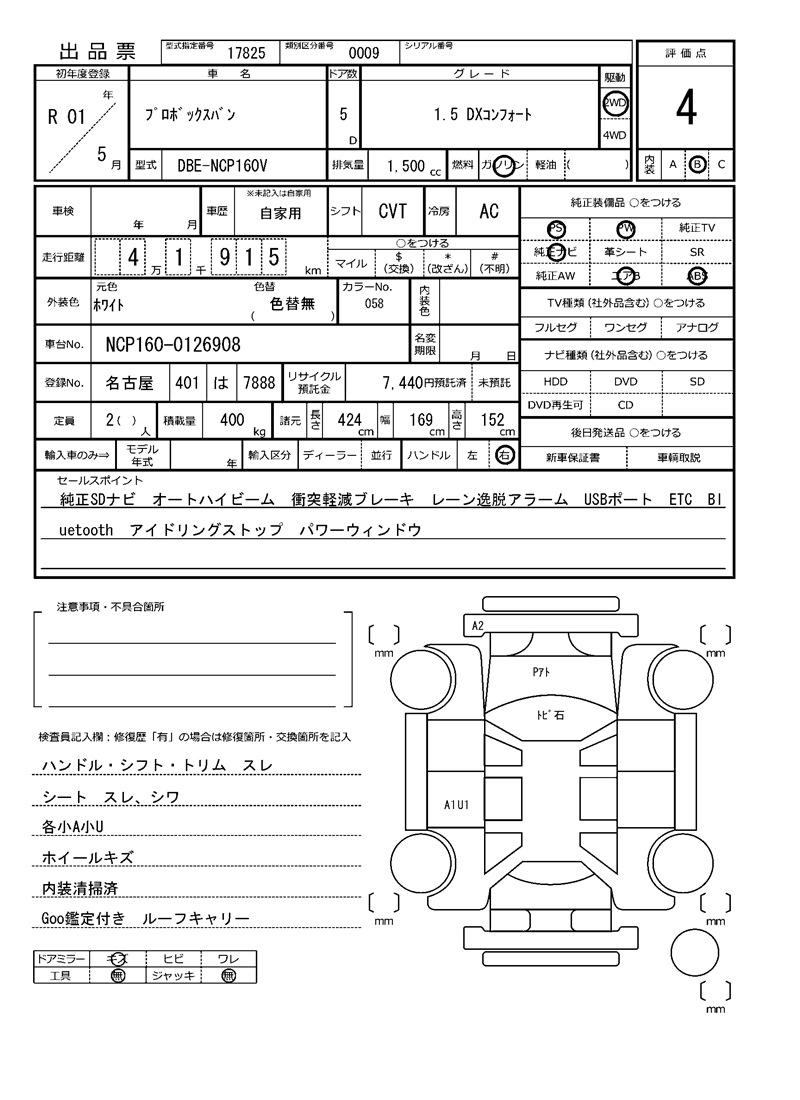 出品票
型式指定番号 17825 類別区分番号 0009 シリアル番号
評価点
4
内装 A B C
初年度登録 車名 ドア数 グレード 駆動
R 01 年 5 月
ﾌﾟﾛﾎﾞｯｸｽﾊﾞﾝ 5 D 1.5 DXｺﾝﾌｫｰﾄ 2WD 4WD
型式 DBE-NCP160V 排気量 1,500 cc 燃料 ガソリン 軽油 ( )
車検 年 月 車歴 ※未記入は自家用 自家用 シフト CVT 冷房 AC
走行距離 4 万 1 千 9 1 5 km
○をつける
マイル $(交換) *(改ざん) #(不明)
外装色 元色 ﾎﾜｲﾄ 色替 ( 色替無 ) カラーNo. 058 内装色
車台No. NCP160-0126908 名変期限 月 日
登録No. 名古屋 401 は 7888 リサイクル預託金 7,440円預託済 未預託
定員 2 ( ) 人 積載量 400 kg 諸元 長さ 424 cm 幅 169 cm 高さ 152 cm
輸入車のみ⇒ モデル年式 年 輸入区分 ディーラー 並行 ハンドル 左 右
純正装備品 ○をつける
PS PW 純正TV
純正ナビ 革シート SR
純正AW エアB ABS
TV種類(社外品含む) ○をつける
フルセグ ワンセグ アナログ
ナビ種類(社外品含む) ○をつける
HDD DVD SD
DVD再生可 CD
後日発送品 ○をつける
新車保証書 車輌取説
セールスポイント
純正SDナビ オートハイビーム 衝突軽減ブレーキ レーン逸脱アラーム USBポート ETC Bl
uetooth アイドリングストップ パワーウィンドウ
注意事項・不具合箇所
検査員記入欄：修復歴「有」の場合は修復箇所・交換箇所を記入
ハンドル・シフト・トリム スレ
シート スレ、シワ
各小A小U
ホイールキズ
内装清掃済
Goo鑑定付き ルーフキャリー
ドアミラー キズ ヒビ ワレ
工具 無 ジャッキ 無
A2
Pｱﾄ
ﾄﾋﾞ石
A1U1
mm
mm
mm
mm
mm